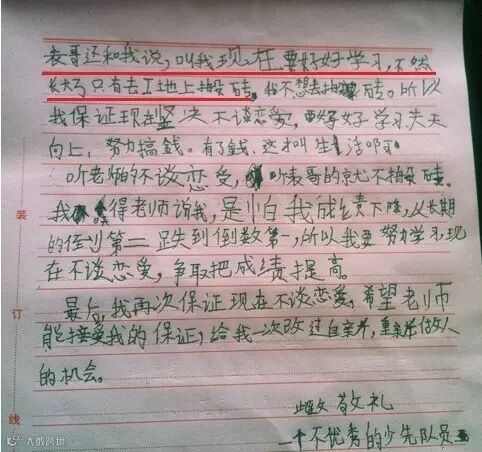 表哥还和我说,叫我现在要好好学习,不然
长大了只有去工地上搬砖,我不想去搬砖。所以
我保证现在坚决不谈恋爱,要好好学习天天
向上,努力搞钱。有了钱,这才叫生活啊
听老师的不谈恋爱,听表哥的就不搬砖。
我觉得老师说我,是怕我成绩下降,从长期
的倒数第二跌到倒数第一,所以我要努力学习,现
在不谈恋爱,争取把成绩提高。
最后,我再次保证现在不谈恋爱,希望老师
能接受我的保证,给我一次改过自新,重新做人
的机会。
敬礼
一个不优秀的少先队员
装
订
线
大数跨境